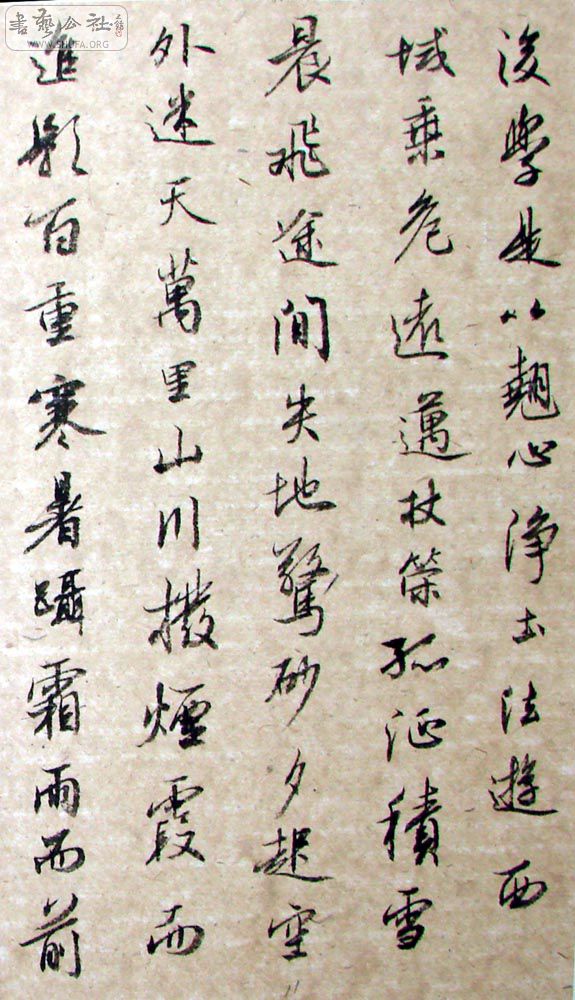 後學是以翹心淨土法遊西
域乘危遠邁杖策孤征積雪
晨飛途間失地驚砂夕起空
外迷天萬里山川撥煙霞而
進影百重寒暑躡霜雨而前
書藝公社
WWW.SHUFA.ORG